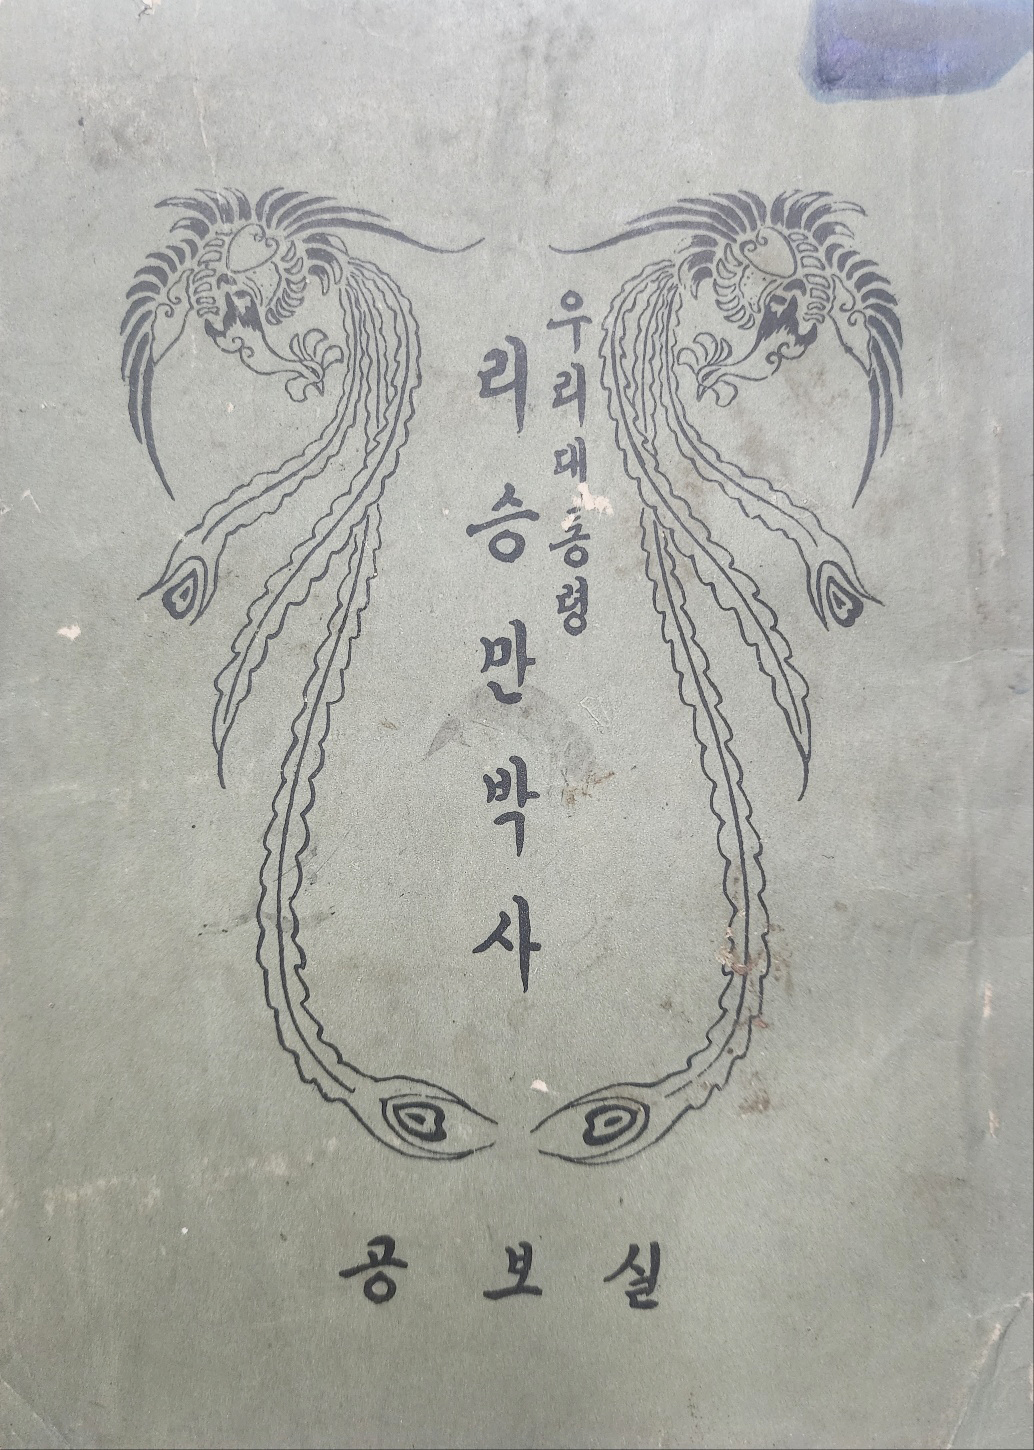 우리대통령
리승만박사
공보실